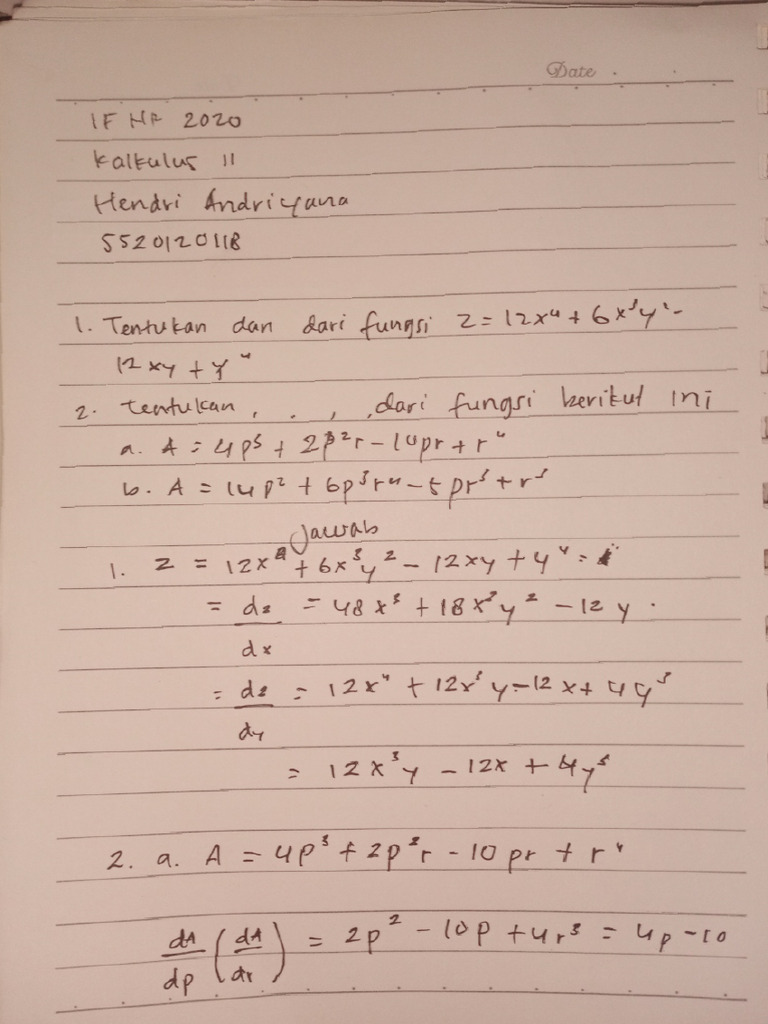 Date
IF NR 2020
Kalkulus II
Hendri Andriyana
5520120118
1. Tentukan dan dari fungsi z = 12x⁴ + 6x³y² -
12xy + y⁴
2. tentukan, . . , , dari fungsi berikut ini
a. A = 4p³ + 2p²r - 10pr + r⁴
b. A = 14p² + 6p³r⁴ - 5pr³ + r³
Jawab
1. z = 12x⁴ + 6x³y² - 12xy + y⁴ =
= dz/dx = 48x³ + 18x²y² - 12y.
= dz/dy = 12x⁴ + 12x³y - 12x + 4y³
= 12x³y - 12x + 4y³
2. a. A = 4p³ + 2p²r - 10pr + r⁴
dA/dp (dA/dr) = 2p² - 10p + 4r³ = 4p - 10